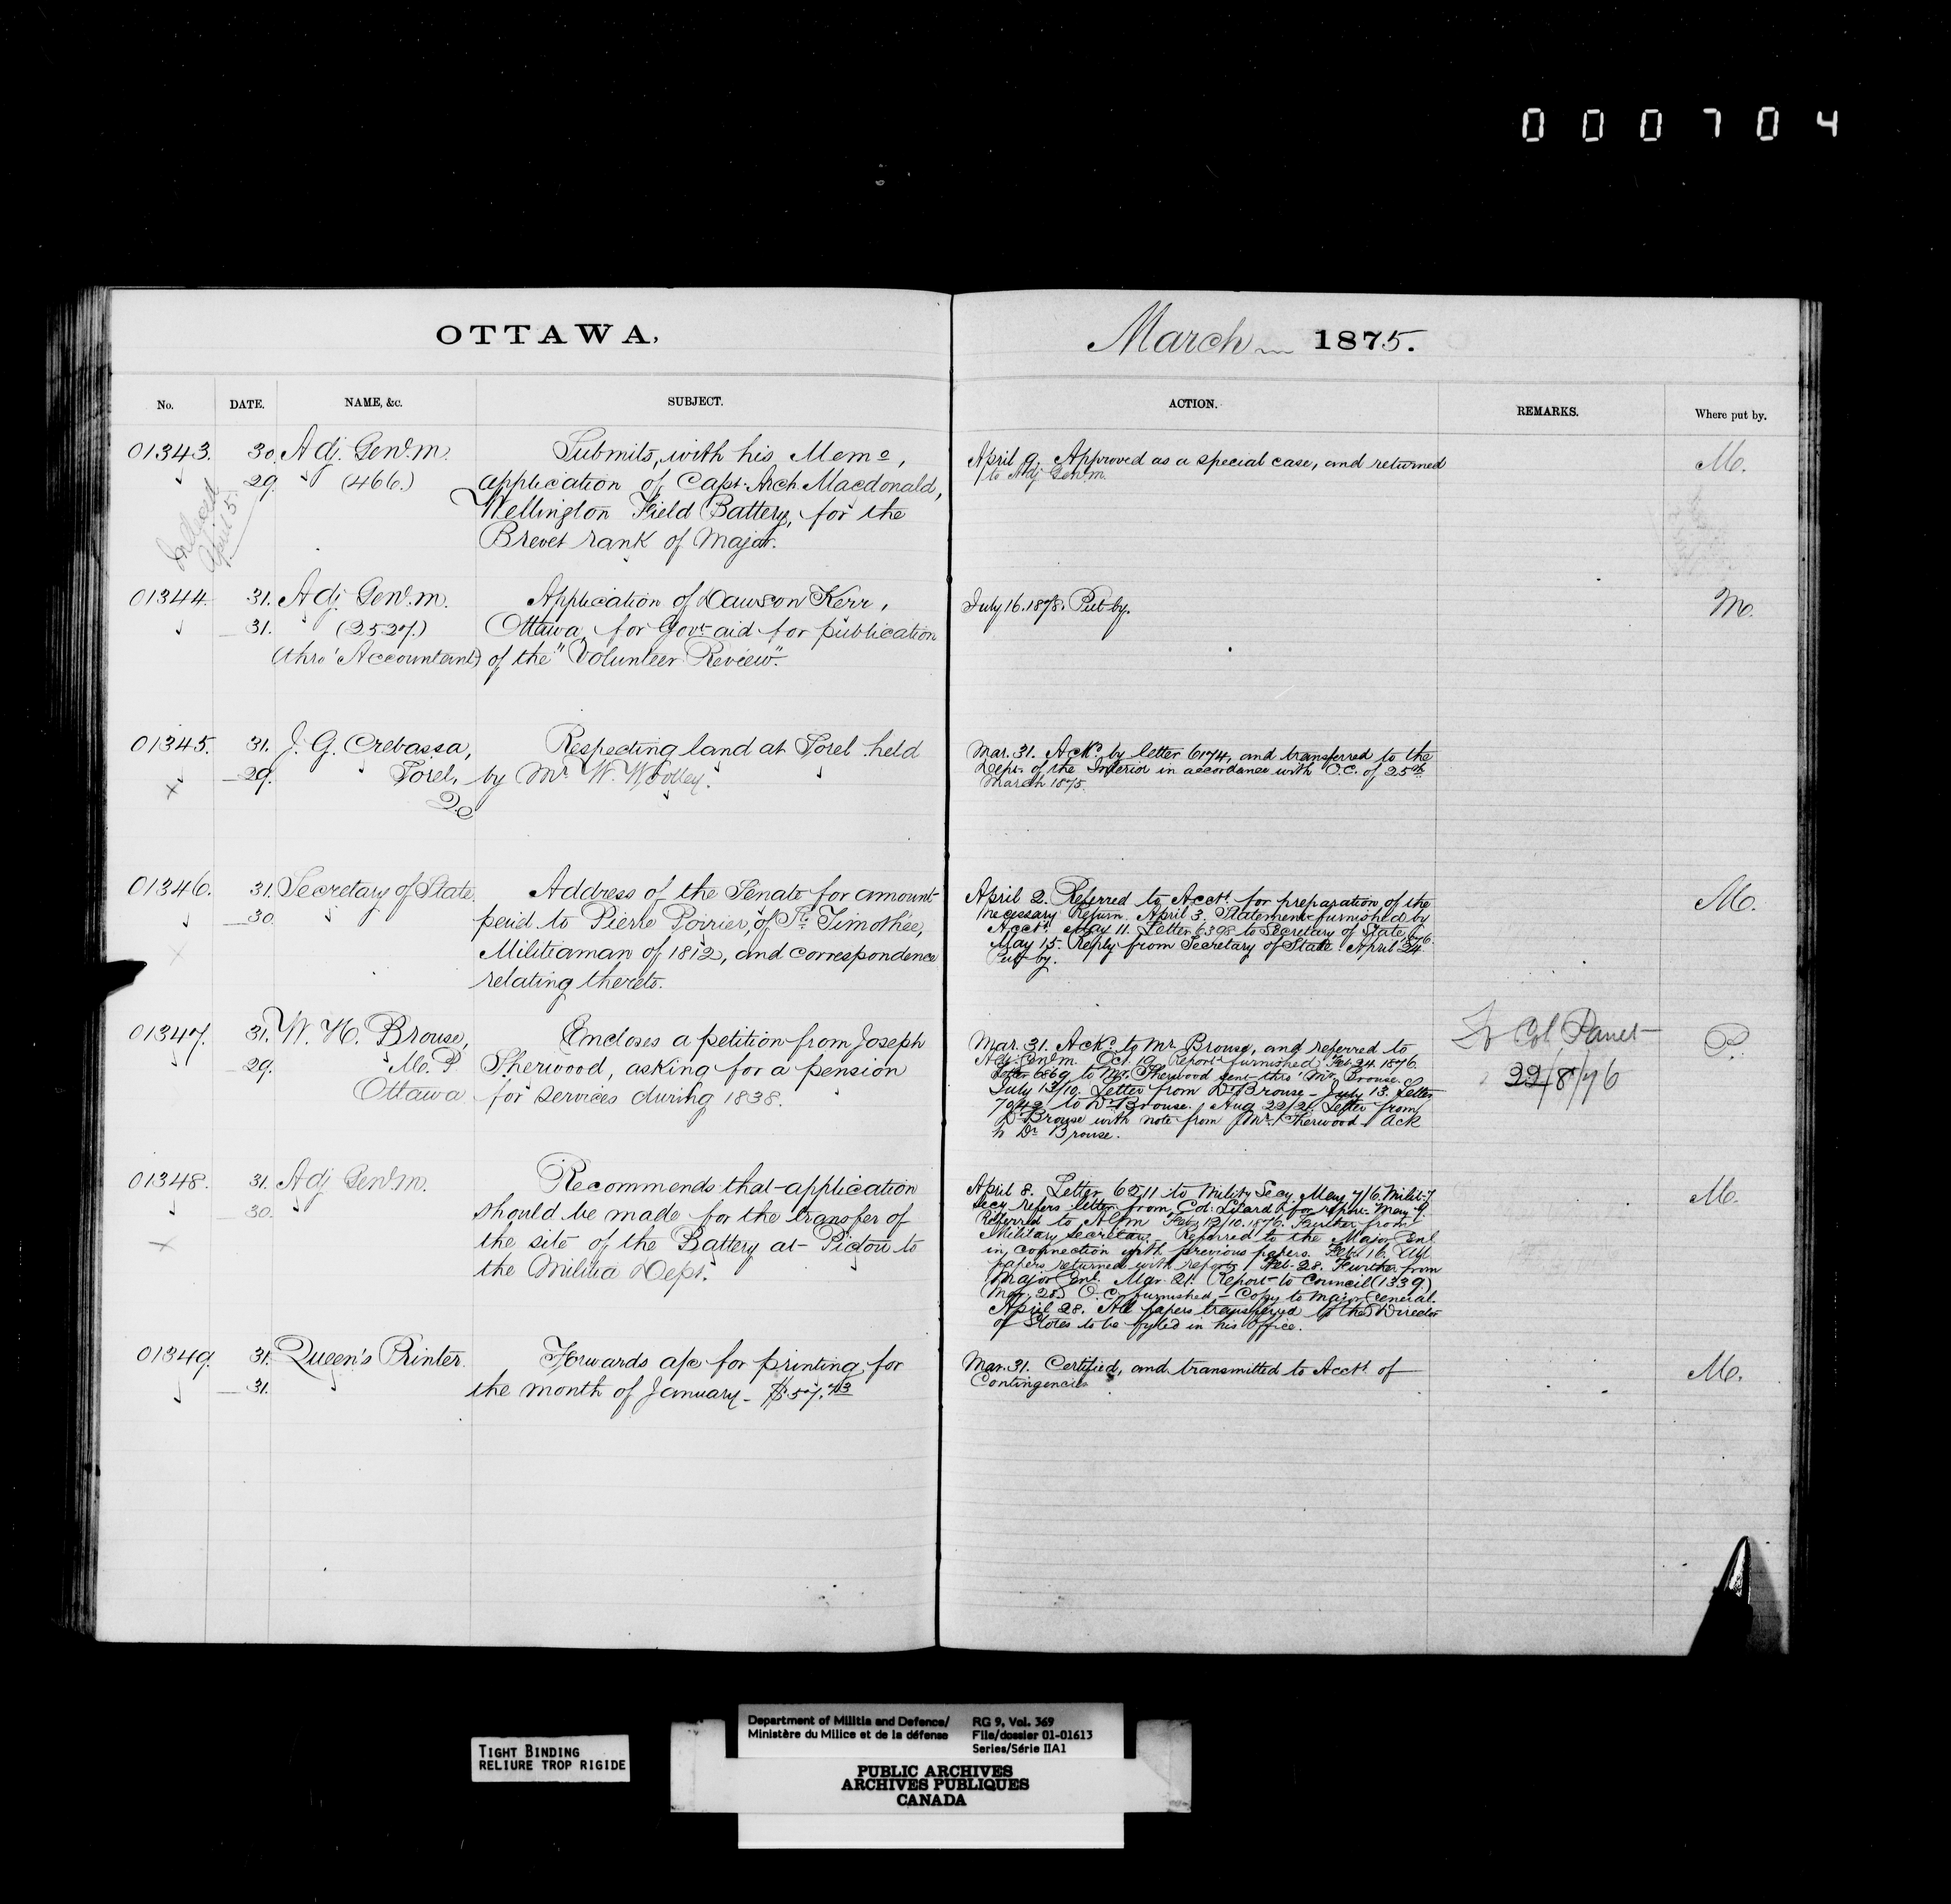 000704
OTTAWA,
March 1875.
No. DATE. NAME, &c. SUBJECT. ACTION. REMARKS. Where put by.
01343. 30. Adj. Genl. M. Submits, with his Memo,
29. (466.) application of Capt. Arch Macdonald,
Wellington Field Battery, for the
Brevet rank of Major.
April 5.
April 9. Approved as a special case, and returned
to Adj. Genl. M.
M.
01344. 31. Adj. Genl. M. Application of Dawson Kerr,
31. (2527.) Ottawa, for Govt aid for publication
(thro' Accountant) of the "Volunteer Review".
July 16. 1878. Put by.
M.
01345. 31. J. G. Crebassa, Respecting land at Sorel held
29. Sorel, by Mr. W. Wolley.
Q.
Mar. 31. Ackd. by letter 6174, and transferred to the
Dept. of the Interior in accordance with O.C. of 25th
March 1875.
01346. 31. Secretary of State. Address of the Senate for amount
30. paid to Pierre Poirier, of St. Timothée,
Militiaman of 1812, and correspondence
relating thereto.
April 2. Referred to Acct. for preparation of the
necessary Return. April 3. Statement furnished by
Acct. May 11. Letter 6398 to Secretary of State
May 15. Reply from Secretary of State. April 24.
Put by.
M.
01347. 31. W. H. Brouse, Encloses a petition from Joseph
29. M.P. Sherwood, asking for a pension
Ottawa for services during 1838.
Mar. 31. Ackd. to Mr Brouse, and referred to
Adj. Genl. M. Oct. 19. Report furnished. Feb. 24. 1876.
Letter 6869 to Mr. Sherwood sent thro' Mr. Brouse.
July 13/10. Letter from Dr. Brouse - July 13. Letter
7042 to Dr. Brouse. Aug 22/21. Letter from
Dr. Brouse with note from Mr. Sherwood. Ack
to Dr. Brouse.
Lt Col Panet
22/8/76
P.
01348. 31. Adj Genl. M. Recommends that application
30. should be made for the transfer of
the site of the Battery at Pictou to
the Militia Dept.
April 8. Letter 6211 to Mility Secy. May 7/6. Milit-y
Secy refers letter from Col. for report. May 9.
Referred to AGM Feb. 12/10. 1876. Further from
Military Secretary - Referred to the Major Genl
in connection with previous papers. Feb. 16. All
papers returned with report. Feb. 28. Further from
Major Genl. Mar. 21. Report to Council (1339)
Mar. 28. O.C. furnished - Copy to Major General.
April 28. All papers transferred to the Director
of Stores to be fyled in his Office.
M.
01349. 31. Queen's Printer. Forwards a/c for printing for
31. the month of January - $57.43
Mar. 31. Certified, and transmitted to Acct. of
Contingencies
M.
TIGHT BINDING
RELIURE TROP RIGIDE
Department of Militia and Defence/ RG 9, Vol. 369
Ministère du Milice et de la défense File/dossier 01-01613
Series/Série IIA1
PUBLIC ARCHIVES
ARCHIVES PUBLIQUES
CANADA